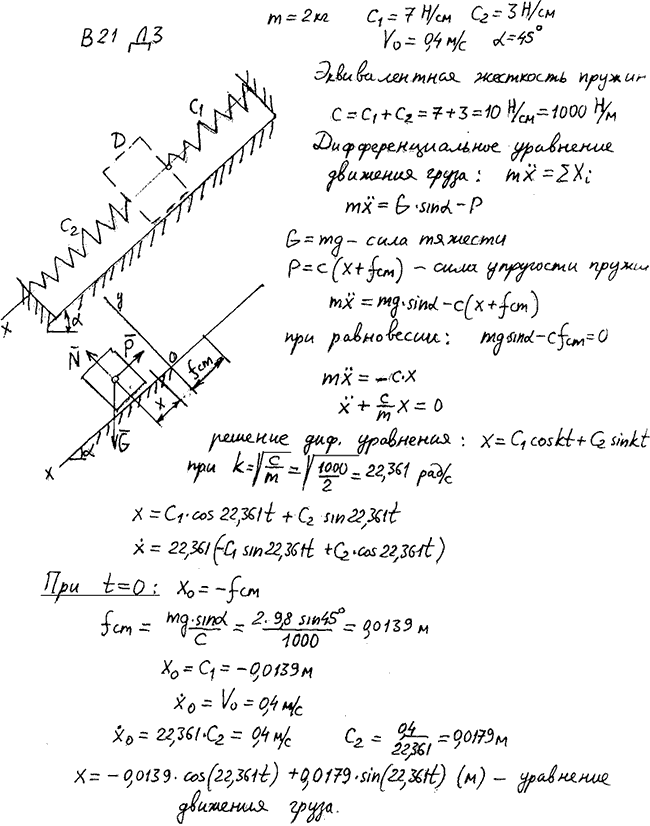 В21 Д3
m = 2 кг   C₁ = 7 Н/см   C₂ = 3 Н/см
V₀ = 0,4 м/с   α = 45°
Эквивалентная жесткость пружин
C = C₁ + C₂ = 7 + 3 = 10 Н/см = 1000 Н/м
Дифференциальное уравнение
движения груза: mẍ = ΣXᵢ
mẍ = G·sinα − P
G = mg – сила тяжести
P = c(x + fст) – сила упругости пружи
mẍ = mg·sinα − c(x + fст)
при равновесии: mg sinα − cfст = 0
mẍ = −c·x
ẍ + c/m x = 0
D
C₁
C₂
x
α
y
N̄
P̄
O
fст
x
Ḡ
α
x
решение диф. уравнения: x = C₁ cos kt + C₂ sin kt
при k = √(c/m) = √(1000/2) = 22,361 рад/с
x = C₁·cos 22,361t + C₂ sin 22,361t
ẋ = 22,361(−C₁ sin 22,361t + C₂·cos 22,361t)
При t = 0: x₀ = −fст
fст = mg·sinα/C = 2·9,8 sin45°/1000 = 0,0139 м
x₀ = C₁ = −0,0139 м
ẋ₀ = V₀ = 0,4 м/с
ẋ₀ = 22,361·C₂ = 0,4 м/с   C₂ = 0,4/22,361 = 0,0179 м
x = −0,0139·cos(22,361t) + 0,0179·sin(22,361t) (м) – уравнение
движения груза.